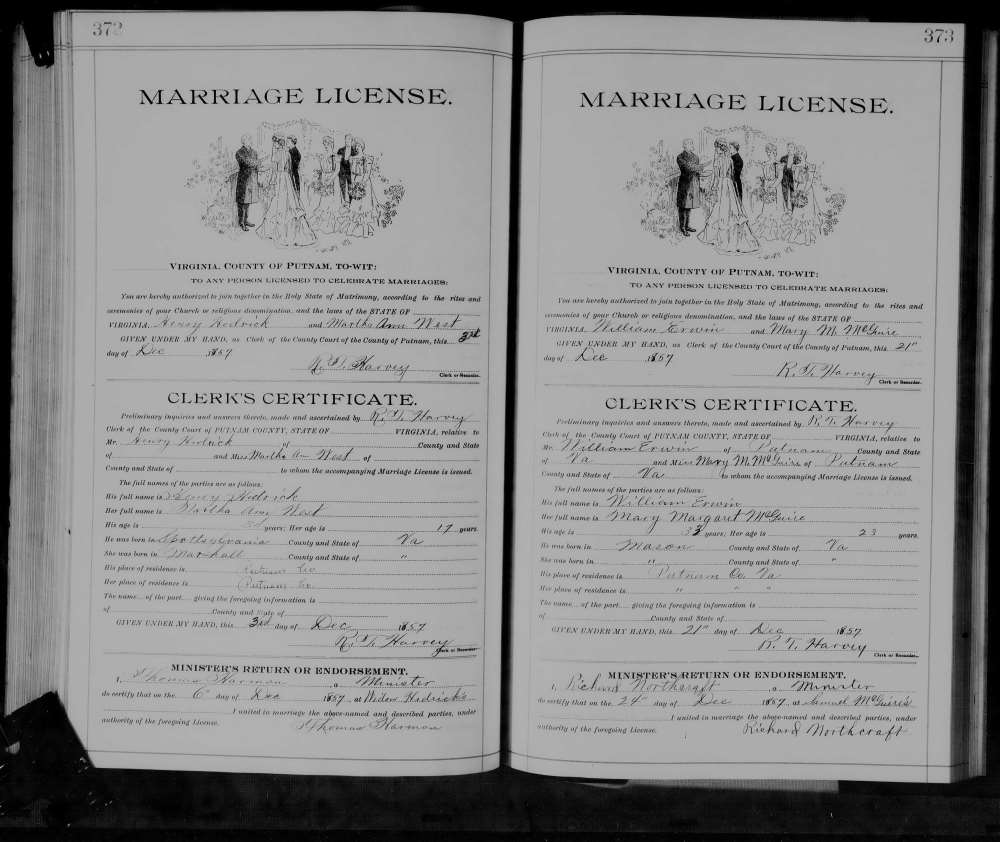 372
MARRIAGE LICENSE.
VIRGINIA, COUNTY OF PUTNAM, TO-WIT:
TO ANY PERSON LICENSED TO CELEBRATE MARRIAGES:
You are hereby authorized to join together in the Holy State of Matrimony, according to the rites and
ceremonies of your Church or religious denomination, and the laws of the STATE OF
VIRGINIA. Henry Hedrick and Martha Ann West
GIVEN UNDER MY HAND, as Clerk of the County Court of the County of Putnam, this 3rd
day of Dec 1857
R. T. Harvey
Clerk or Recorder.
CLERK'S CERTIFICATE.
Preliminary inquiries and answers thereto, made and ascertained by R. T. Harvey
Clerk of the County Court of PUTNAM COUNTY, STATE OF VIRGINIA, relative to
Mr. Henry Hedrick of County and State
of and Miss Martha Ann West of
County and State of to whom the accompanying Marriage License is issued.
The full names of the parties are as follows:
His full name is Henry Hedrick
Her full name is Martha Ann West
His age is years; Her age is 17 years.
He was born in Spottsylvania County and State of Va
She was born in Marshall County and State of "
His place of residence is Putnam Co
Her place of residence is Putnam Co
The name of the part giving the foregoing information is
of County and State of
GIVEN UNDER MY HAND, this 3rd day of Dec 1857
R. T. Harvey
Clerk or Recorder.
MINISTER'S RETURN OR ENDORSEMENT.
I, Thomas Harmon a Minister
do certify that on the 6" day of Dec 1857, at Widow Hedrick's
I united in marriage the above-named and described parties, under
authority of the foregoing License.
Thomas Harmon
373
MARRIAGE LICENSE.
VIRGINIA, COUNTY OF PUTNAM, TO-WIT:
TO ANY PERSON LICENSED TO CELEBRATE MARRIAGES:
You are hereby authorized to join together in the Holy State of Matrimony, according to the rites and
ceremonies of your Church or religious denomination, and the laws of the STATE OF
VIRGINIA. William Erwin and Mary M. McGuire
GIVEN UNDER MY HAND, as Clerk of the County Court of the County of Putnam, this 21"
day of Dec 1857
R. T. Harvey
Clerk or Recorder.
CLERK'S CERTIFICATE.
Preliminary inquiries and answers thereto, made and ascertained by R. T. Harvey
Clerk of the County Court of PUTNAM COUNTY, STATE OF VIRGINIA, relative to
Mr. William Erwin of Putnam County and State
of Va and Miss Mary M. McGuire of Putnam
County and State of Va to whom the accompanying Marriage License is issued.
The full names of the parties are as follows:
His full name is William Erwin
Her full name is Mary Margaret McGuire
His age is 33 years; Her age is 23 years.
He was born in Mason County and State of Va
She was born in " County and State of "
His place of residence is Putnam Co. Va
Her place of residence is " " "
The name of the part giving the foregoing information is
of County and State of
GIVEN UNDER MY HAND, this 21" day of Dec 1857
R. T. Harvey
Clerk or Recorder.
MINISTER'S RETURN OR ENDORSEMENT.
I, Richard Northcraft a Minister
do certify that on the 24" day of Dec 1857, at Samuel McGuire's
I united in marriage the above-named and described parties, under
authority of the foregoing License.
Richard Northcraft